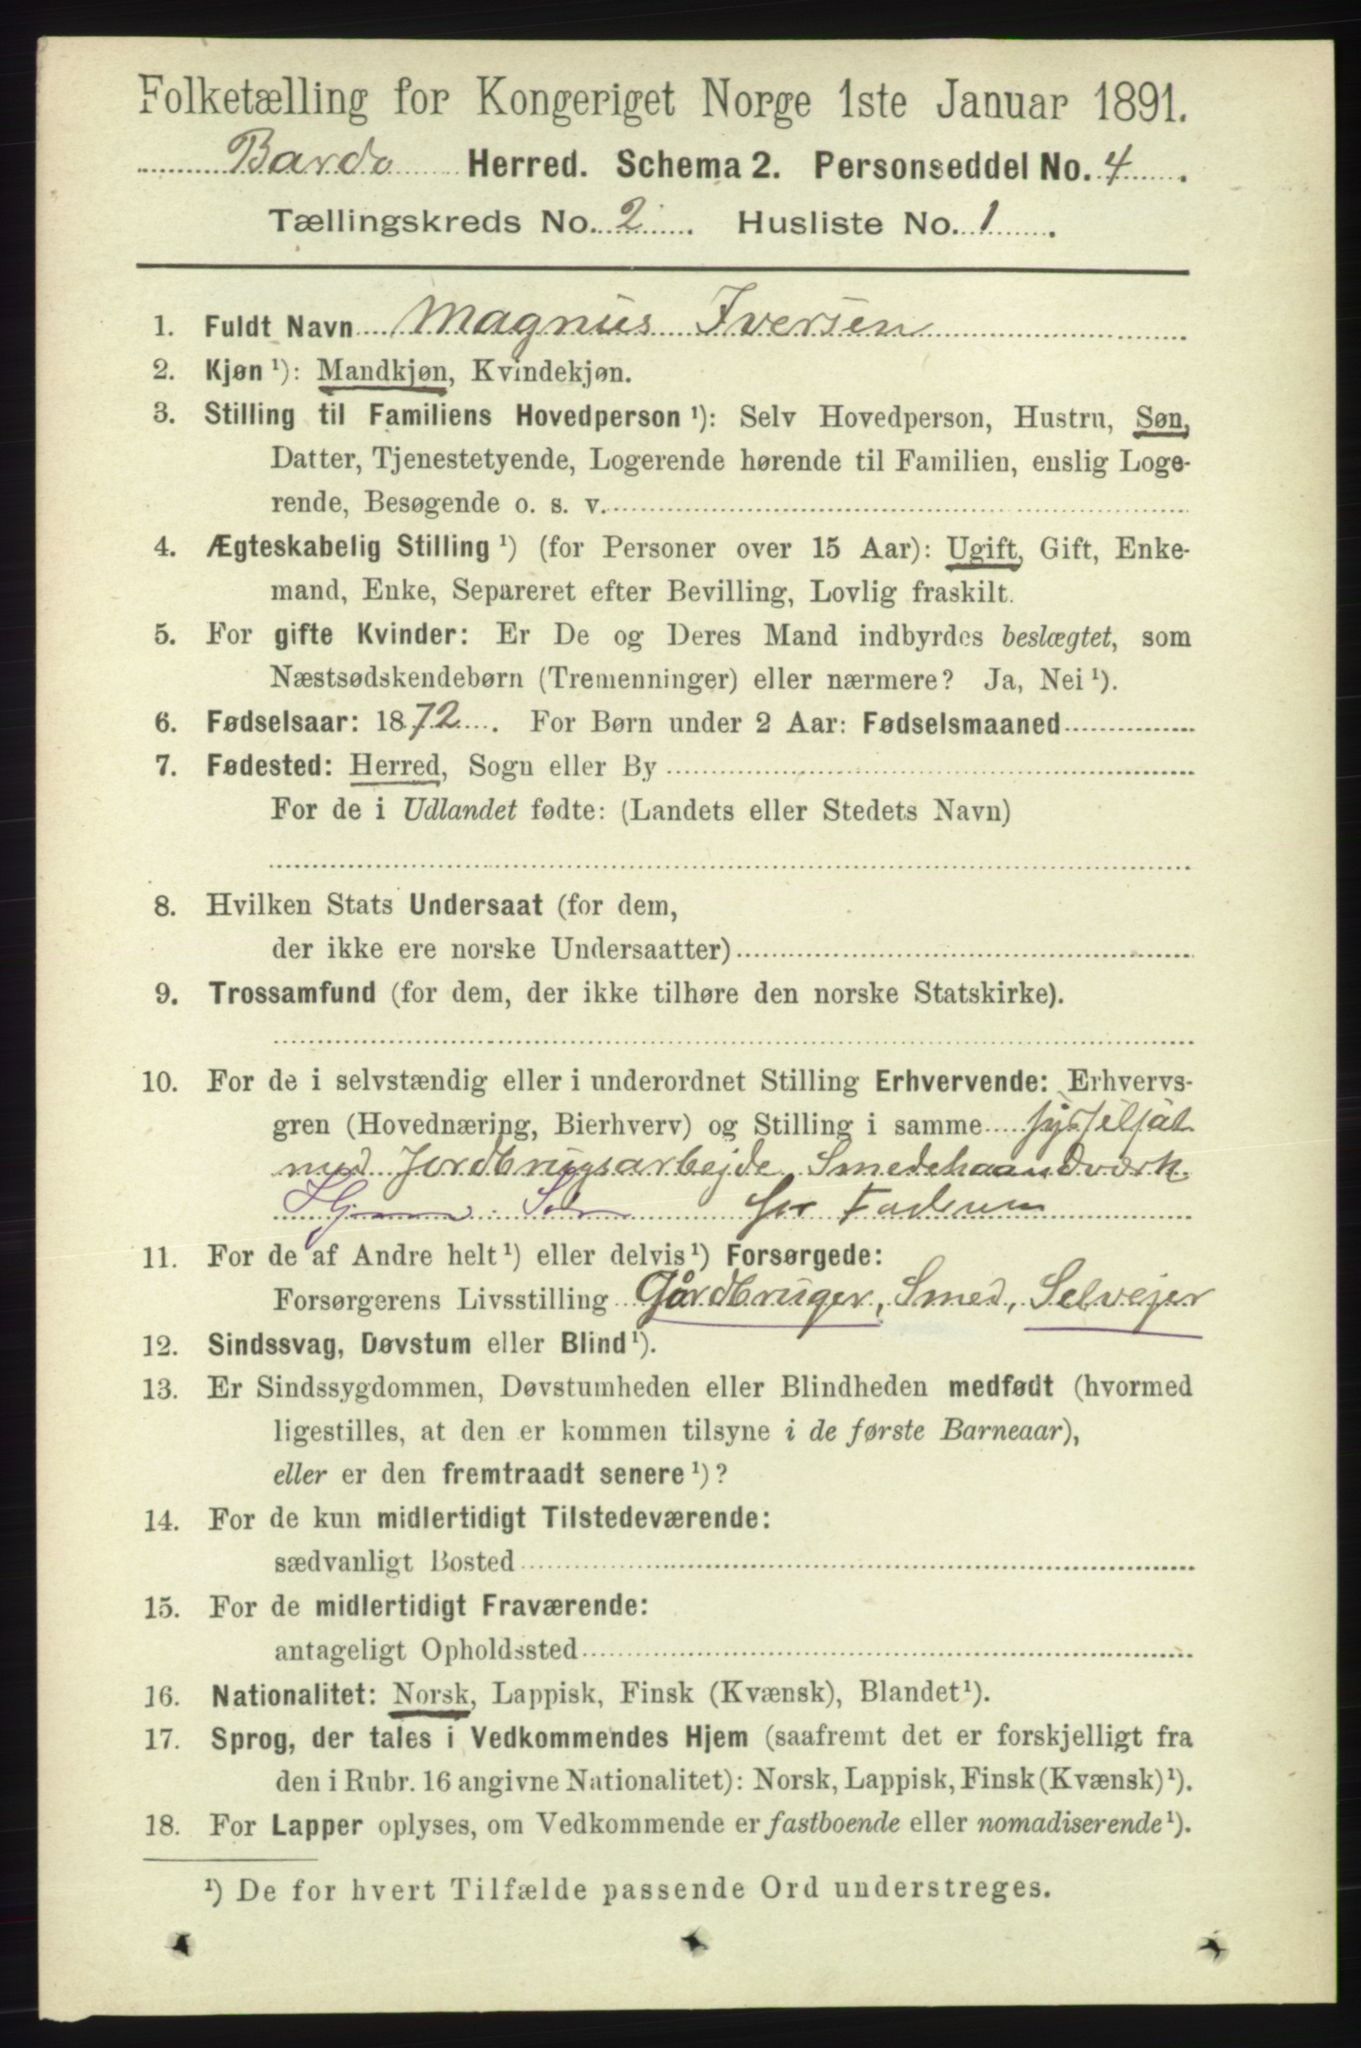 Folketælling for Kongeriget Norge 1ste Januar 1891.
Bardo Herred. Schema 2. Personseddel No. 4.
Tællingskreds No. 2. Husliste No. 1.
1. Fuldt Navn Magnus Iversen
2. Kjøn ¹): Mandkjøn, Kvindekjøn.
3. Stilling til Familiens Hovedperson ¹): Selv Hovedperson, Hustru, Søn,
Datter, Tjenestetyende, Logerende hørende til Familien, enslig Loge-
rende, Besøgende o. s. v.
4. Ægteskabelig Stilling ¹) (for Personer over 15 Aar): Ugift, Gift, Enke-
mand, Enke, Separeret efter Bevilling, Lovlig fraskilt.
5. For gifte Kvinder: Er De og Deres Mand indbyrdes beslægtet, som
Næstsødskendebørn (Tremenninger) eller nærmere? Ja, Nei ¹).
6. Fødselsaar: 1872. For Børn under 2 Aar: Fødselsmaaned
7. Fødested: Herred, Sogn eller By
For de i Udlandet fødte: (Landets eller Stedets Navn)
8. Hvilken Stats Undersaat (for dem,
der ikke ere norske Undersaatter)
9. Trossamfund (for dem, der ikke tilhøre den norske Statskirke).
10. For de i selvstændig eller i underordnet Stilling Erhvervende: Erhvervs-
gren (Hovednæring, Bierhverv) og Stilling i samme sysselsat
med Jordbrugsarbejde Smedehaandværk
for Faderen
11. For de af Andre helt ¹) eller delvis ¹) Forsørgede:
Forsørgerens Livsstilling Gårdbruger, Smed, Selvejer
12. Sindssvag, Døvstum eller Blind ¹).
13. Er Sindssygdommen, Døvstumheden eller Blindheden medfødt (hvormed
ligestilles, at den er kommen tilsyne i de første Barneaar),
eller er den fremtraadt senere ¹)?
14. For de kun midlertidigt Tilstedeværende:
sædvanligt Bosted
15. For de midlertidigt Fraværende:
antageligt Opholdssted
16. Nationalitet: Norsk, Lappisk, Finsk (Kvænsk), Blandet ¹).
17. Sprog, der tales i Vedkommendes Hjem (saafremt det er forskjelligt fra
den i Rubr. 16 angivne Nationalitet): Norsk, Lappisk, Finsk (Kvænsk) ¹).
18. For Lapper oplyses, om Vedkommende er fastboende eller nomadiserende ¹).
¹) De for hvert Tilfælde passende Ord understreges.